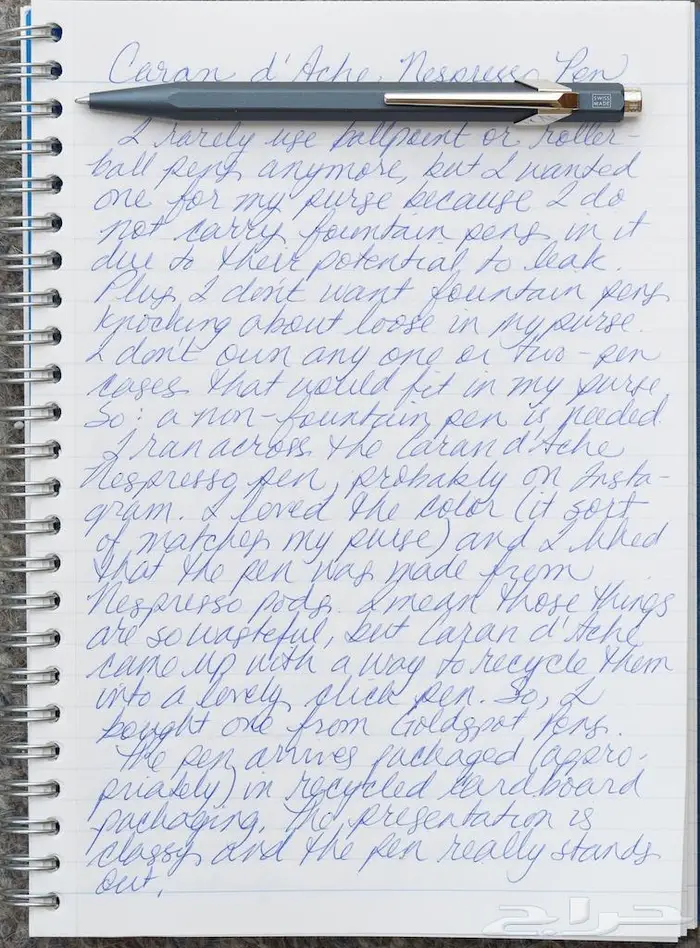 Caran d'Ache Nespresso Pen
SWISS
MADE
I rarely use ballpoint or roller-
ball pens anymore, but I wanted
one for my purse because I do
not carry fountain pens in it
due to their potential to leak.
Plus, I don't want fountain pens
knocking about loose in my purse.
I don't own any one or two-pen
cases that would fit in my purse.
So: a non-fountain pen is needed.
I ran across the Caran d'Ache
Nespresso pen, probably on Insta-
gram. I loved the color (it sort
of matches my purse) and I liked
that the pen was made from
Nespresso pods. I mean those things
are so wasteful, but Caran d'Ache
came up with a way to recycle them
into a lovely click pen. So, I
bought one from Goldspot Pens.
The pen arrives packaged (appro-
priately) in recycled cardboard
packaging. The presentation is
classy and the pen really stands
out.
حراج